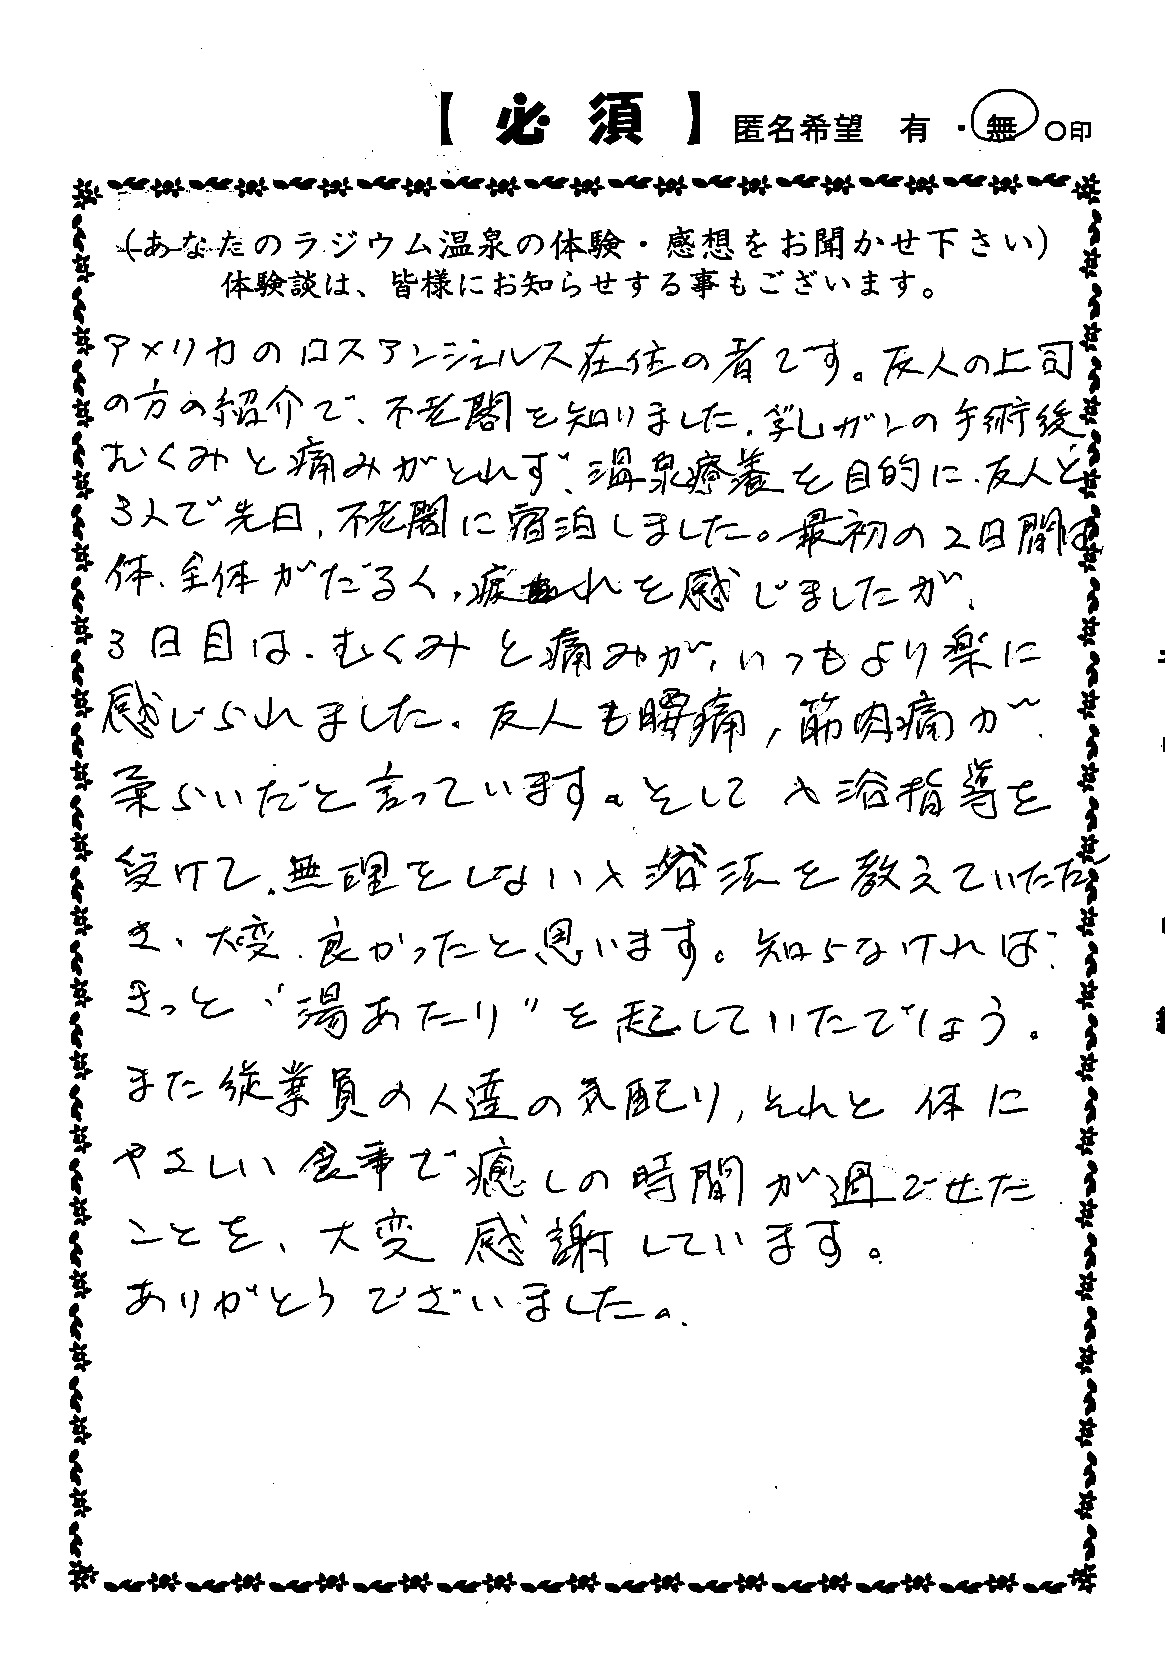 【必須】匿名希望 有・無 ○印
(あなたのラジウム温泉の体験・感想をお聞かせ下さい)
体験談は、皆様にお知らせする事もございます。
アメリカのロスアンジェルス在住の者です。友人の上司
の方の紹介で、不老閣を知りました。乳ガンの手術後
むくみと痛みがとれず、温泉療養を目的に、友人と
3人で先日、不老閣に宿泊しました。最初の2日間は
体、全体がだるく、疲れを感じましたが、
3日目は、むくみと痛みが、いつもより楽に
感じられました。友人も腰痛、筋肉痛が
柔らいだと言っています。そして入浴指導を
受けて、無理をしない入浴法を教えていただ
き、大変、良かったと思います。知らなければ、
きっと“湯あたり”を起していたでしょう。
また従業員の人達の気配り、それと体に
やさしい食事で癒しの時間が過ごせた
ことを、大変感謝しています。
ありがとうございました。